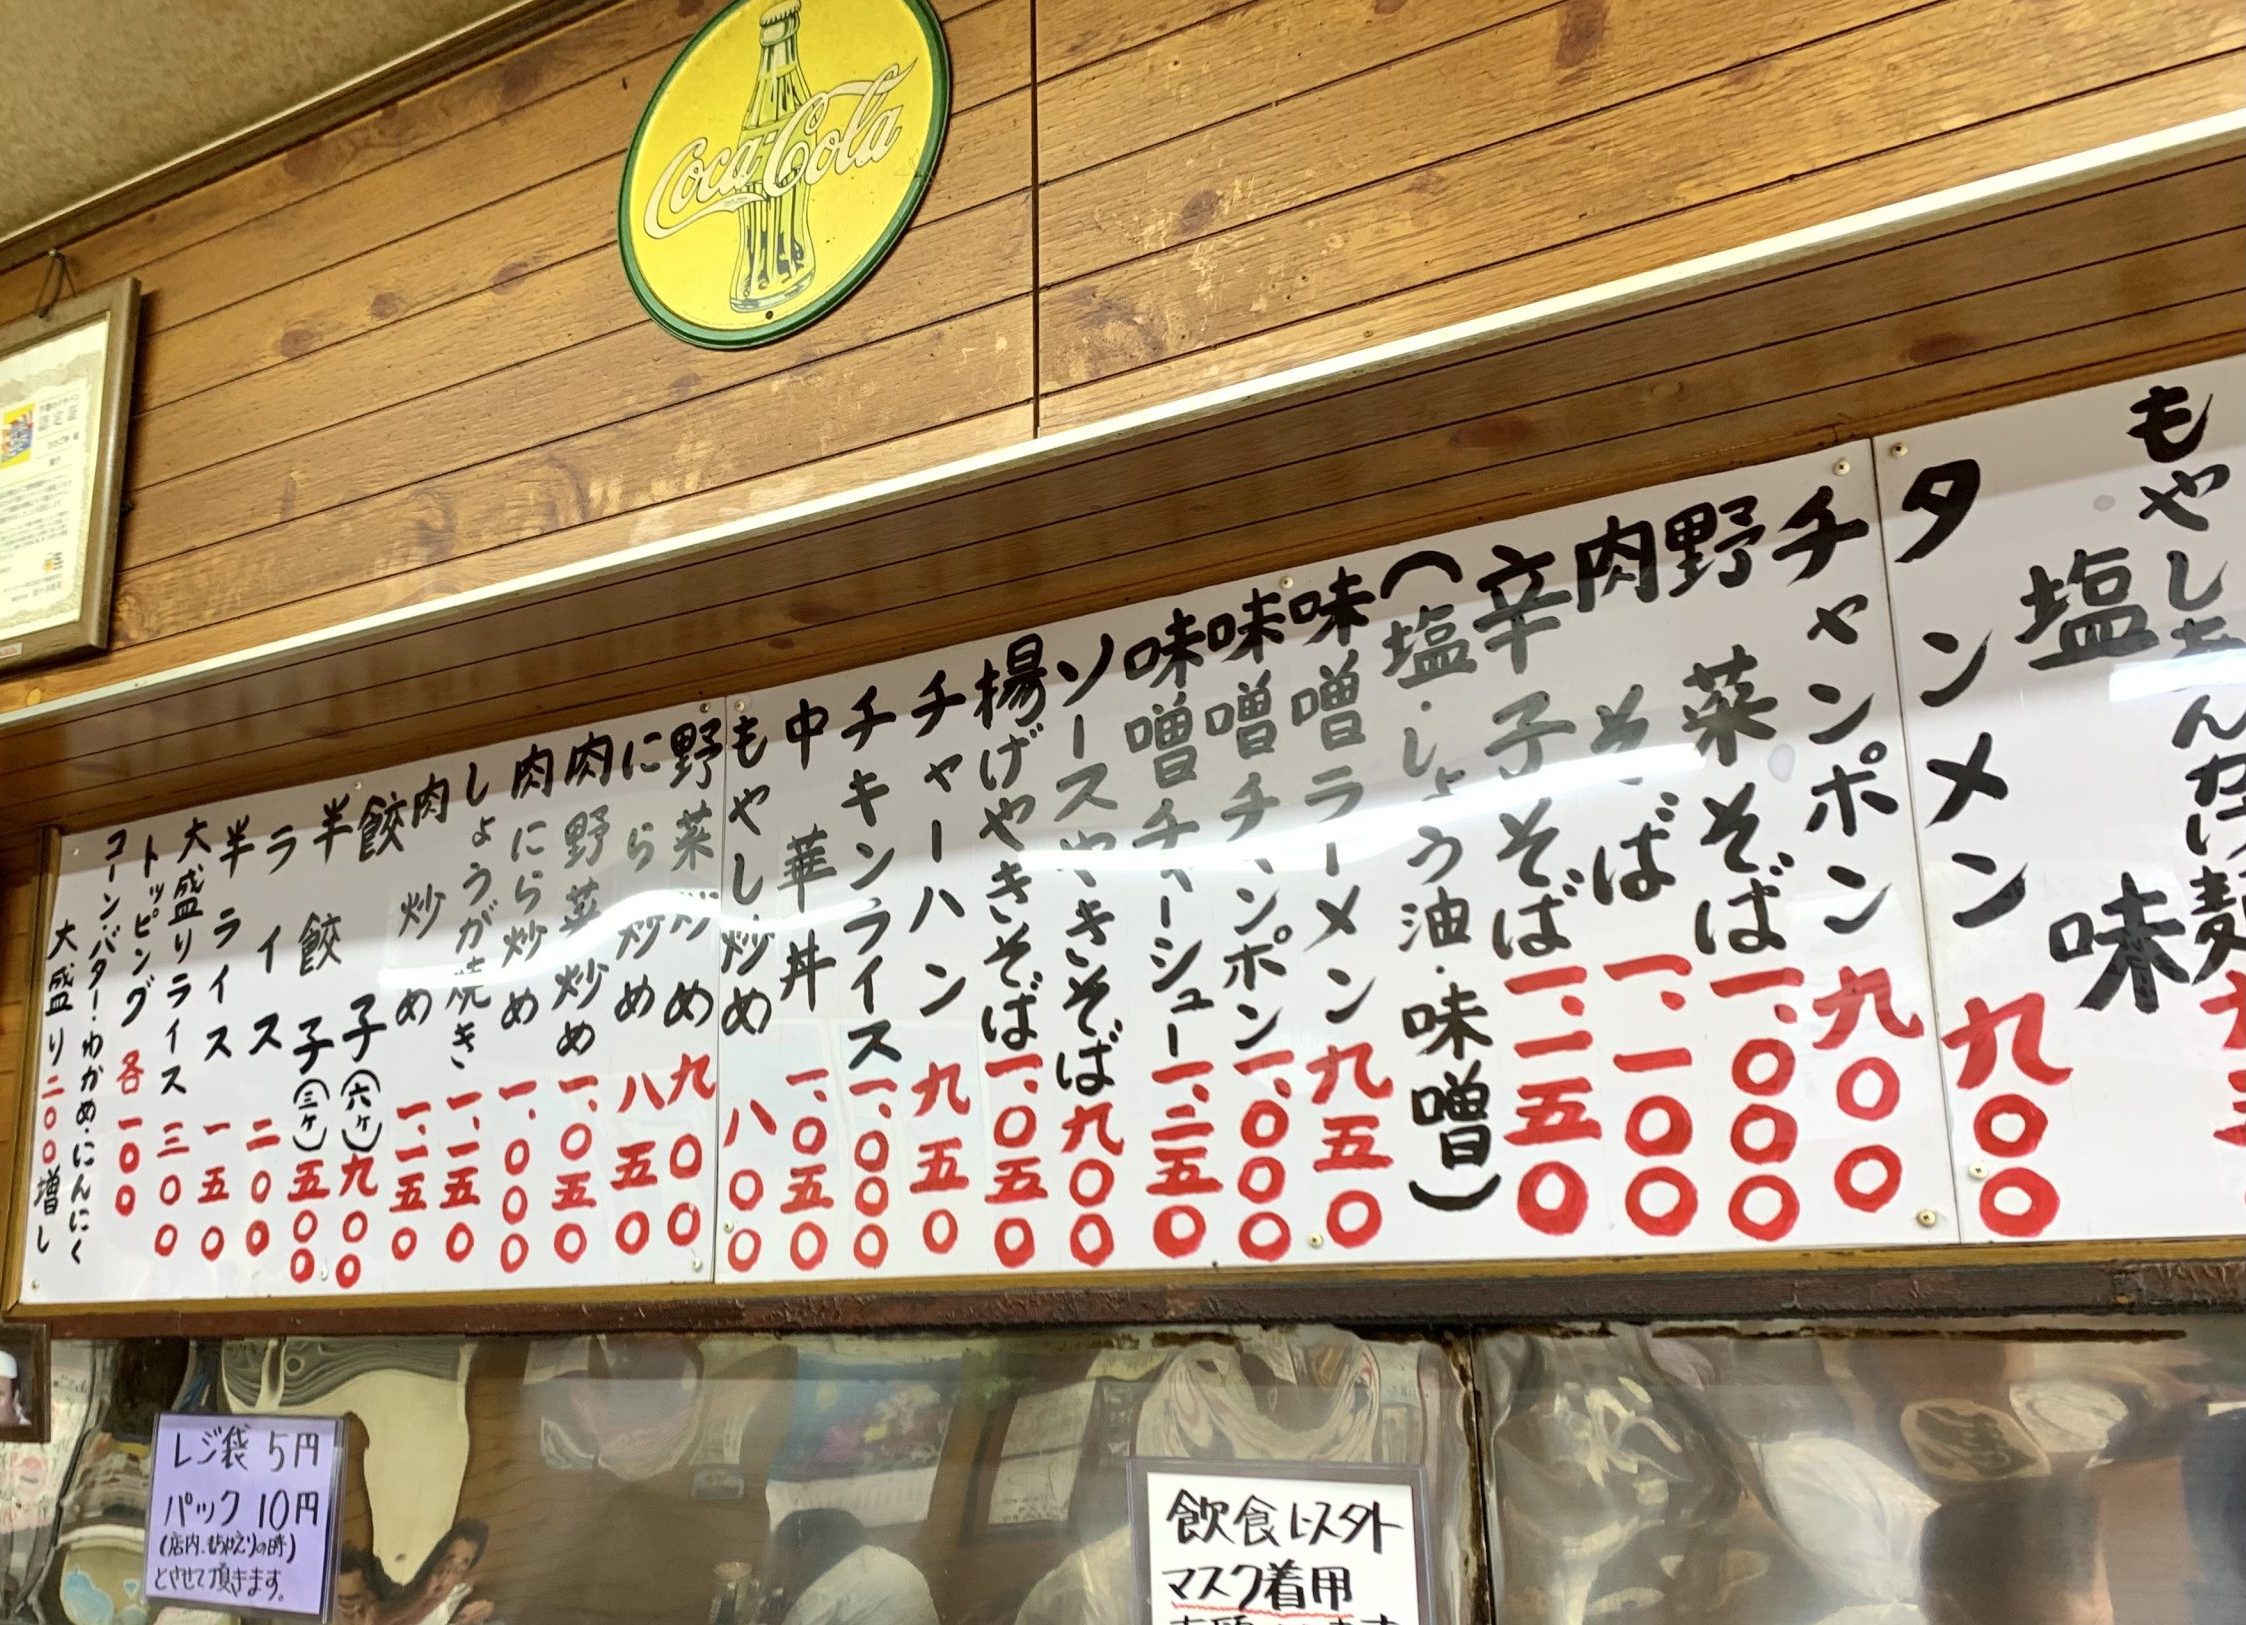 Coca-Cola
もやしあんかけ麺
塩味
タンメン 九〇〇
チャンポン 九〇〇
野菜そば 一、〇〇〇
肉そば 一、一〇〇
辛子そば 一、一五〇
(塩・しょう油・味噌)
味噌ラーメン 九五〇
味噌チャンポン 一、〇〇〇
味噌チャーシュー 一、二五〇
ソースやきそば 九〇〇
揚げやきそば 一、〇五〇
チャーハン 九五〇
チキンライス 一、〇〇〇
中華丼 一、〇五〇
もやし炒め 八〇〇
野菜炒め 九〇〇
にら炒め 八五〇
肉野菜炒め 一、〇五〇
肉にら炒め 一、〇〇〇
しょうが焼き 一、一五〇
肉炒め 一、一五〇
餃子(六ヶ) 九〇〇
半餃子(三ヶ) 五〇〇
ライス 二〇〇
半ライス 一五〇
大盛りライス 三〇〇
トッピング 各一〇〇
コーン・バター・わかめ・にんにく
大盛り二〇〇増し
レジ袋 5円
パック 10円
(店内、もちかえりの時)
とさせて頂きます。
飲食レスタト
マスク着用